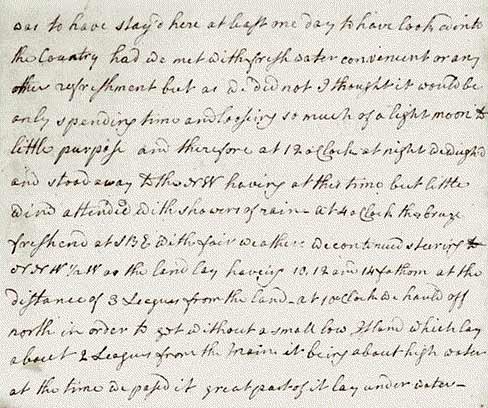 was to have stay'd here at least one day to have look'd into
the Country had we met with fresh water convenient or any
other refreshment but as we did not I thought it would be
only spending time and loosing so much of a light moon to
little purpose and therefore at 12 oClock at night we weigh'd
and stood away to the NW having at this time but little
wind attended with showers of rain - at 4 oClock the breeze
freshend at SBE with fair weather we continued steering
NNW ½ W as the land lay having 10, 12 and 14 fathom at the
distance of 3 Leagues from the land - at 10 oClock we hauld off
north in order to get without a small low Island which lay
about 2 Leagues from the Main it being about high water
at the time we pass'd it great part of it lay under water -